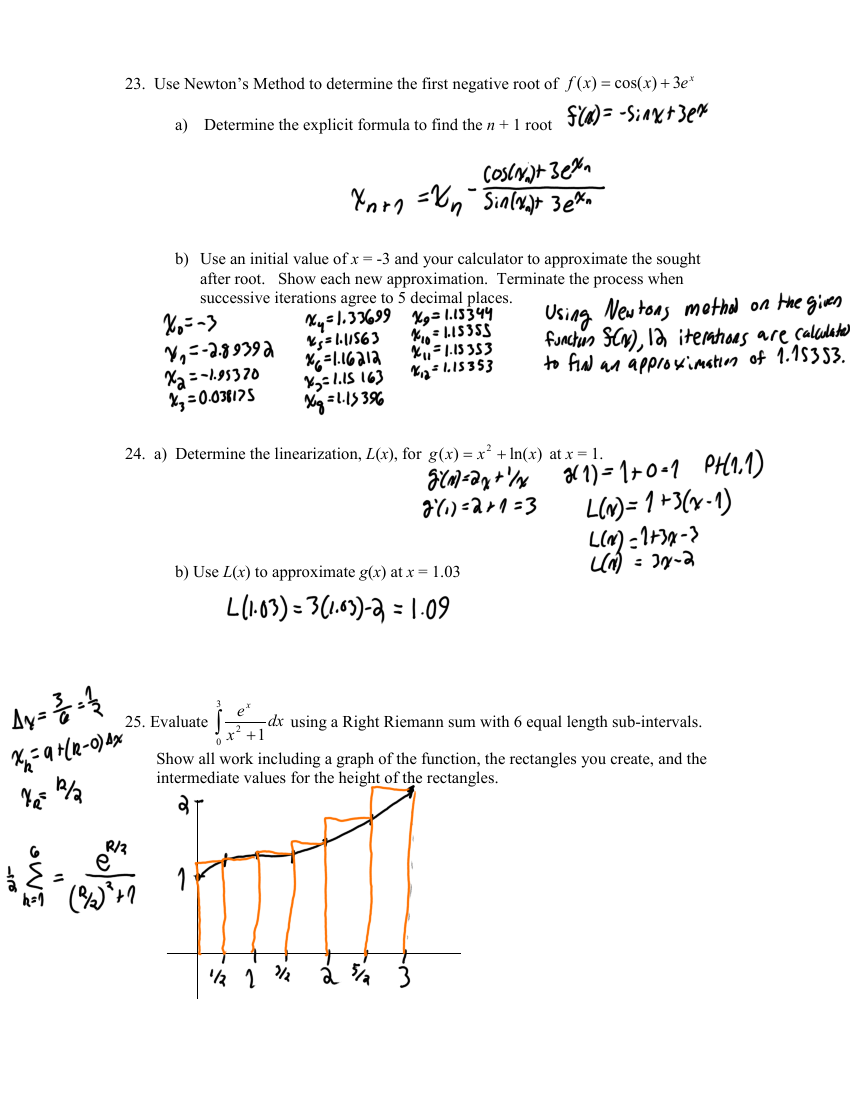 23. Use Newton's Method to determine the first negative root of f(x) = cos(x) + 3e^x
a) Determine the explicit formula to find the n + 1 root f'(x) = -sinx + 3e^x
x_{n+1} = x_n - (cos(x_n) + 3e^{x_n}) / (sin(x_n) + 3e^{x_n})
b) Use an initial value of x = -3 and your calculator to approximate the sought
after root. Show each new approximation. Terminate the process when
successive iterations agree to 5 decimal places.
x_0 = -3
x_1 = -2.89392
x_2 = -1.95370
x_3 = 0.038175
x_4 = 1.33699
x_5 = 1.11563
x_6 = 1.16212
x_7 = 1.15163
x_8 = 1.15396
x_9 = 1.15344
x_10 = 1.15355
x_11 = 1.15353
x_12 = 1.15353
Using Newtons method on the given
function f(x), 12 iterations are calculated
to find an approximation of 1.15353.
24. a) Determine the linearization, L(x), for g(x) = x² + ln(x) at x = 1.
g'(x) = 2x + 1/x
g'(1) = 2 + 1 = 3
g(1) = 1 + 0 = 1 Pt(1,1)
L(x) = 1 + 3(x - 1)
L(x) = 1 + 3x - 3
L(x) = 3x - 2
b) Use L(x) to approximate g(x) at x = 1.03
L(1.03) = 3(1.03) - 2 = 1.09
25. Evaluate ∫_0^3 e^x / (x² + 1) dx using a Right Riemann sum with 6 equal length sub-intervals.
Show all work including a graph of the function, the rectangles you create, and the
intermediate values for the height of the rectangles.
Δx = 3/6 = 1/2
x_k = a + (k - 0)Δx
x_k = k/2
1/2 Σ_{k=1}^6 = e^{k/2} / ((k/2)² + 1)
2
1
1/2 1 3/2 2 5/2 3